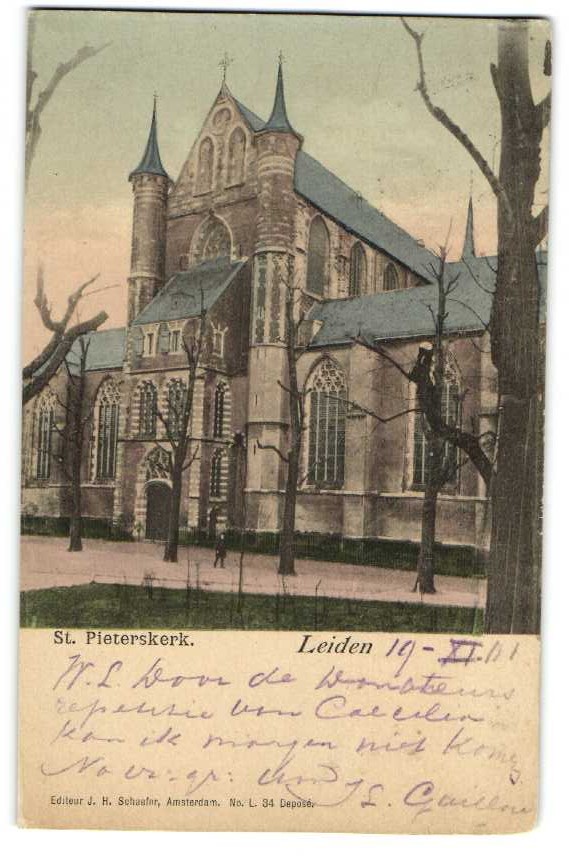 St. Pieterskerk.
Leiden 19-XI.01
W.L. Door de Donateurs
repetitie van Caecilia
kan ik morgen niet komen
Na vr. gr.: 
Editeur J. H. Schaefer, Amsterdam. No. L. 34 Deposé.